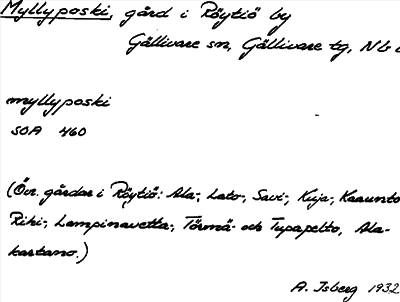 Myllyposki, gård i Röytiö by
Gällivare sn, Gällivare tg, Nb l
myllyposki
SOA 460
(Övr. gårdar i Röytiö: Ala-, Lato-, Savi-, Kuja-, Kaunto
Riki-, Lampinavetta-, Törmä- och Tupapelto, Ala-
kartano.)
A. Isberg 1932